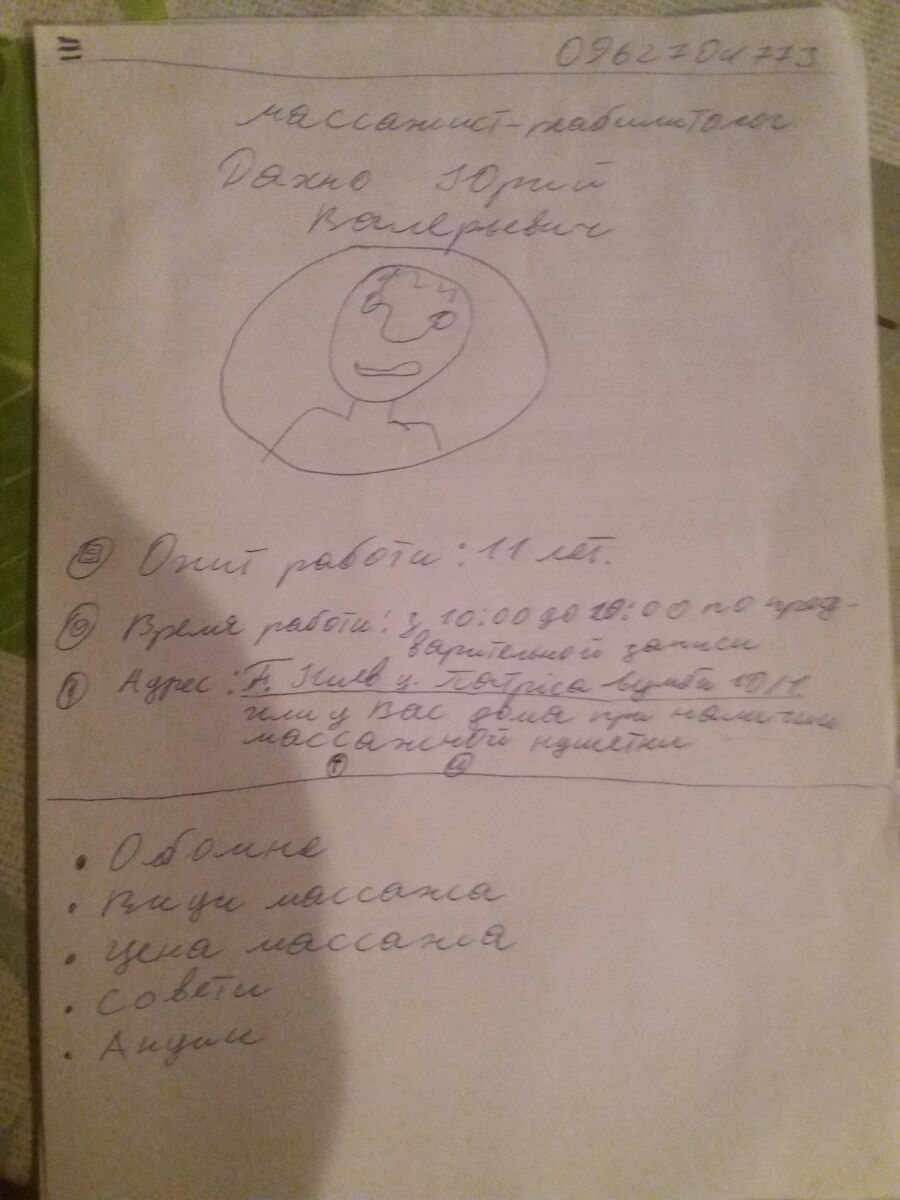 0962704773
массажист-реабилитолог
Дахно Юрий
Валерьевич
Опит работи: 11 лет.
Время работи: з 10:00 до 20:00 по пред-
варительной записи
Адрес: Г. Киев у. Патріса Лумби
или у Вас дома при наличии
массажной кушетки
Обо мне
Види массажа
Цена массажа
Совети
Акции